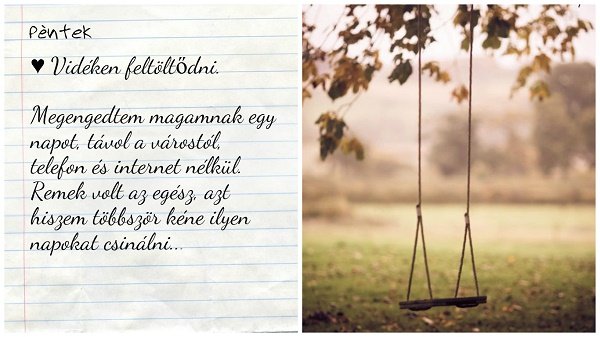 Pèntek
♥ Vidéken feltöltődni.
Megengedtem magamnak egy
napot, távol a várostól,
telefon és internet nélkül.
Remek volt az egész, azt
hiszem többször kéne ilyen
napokat csinálni...